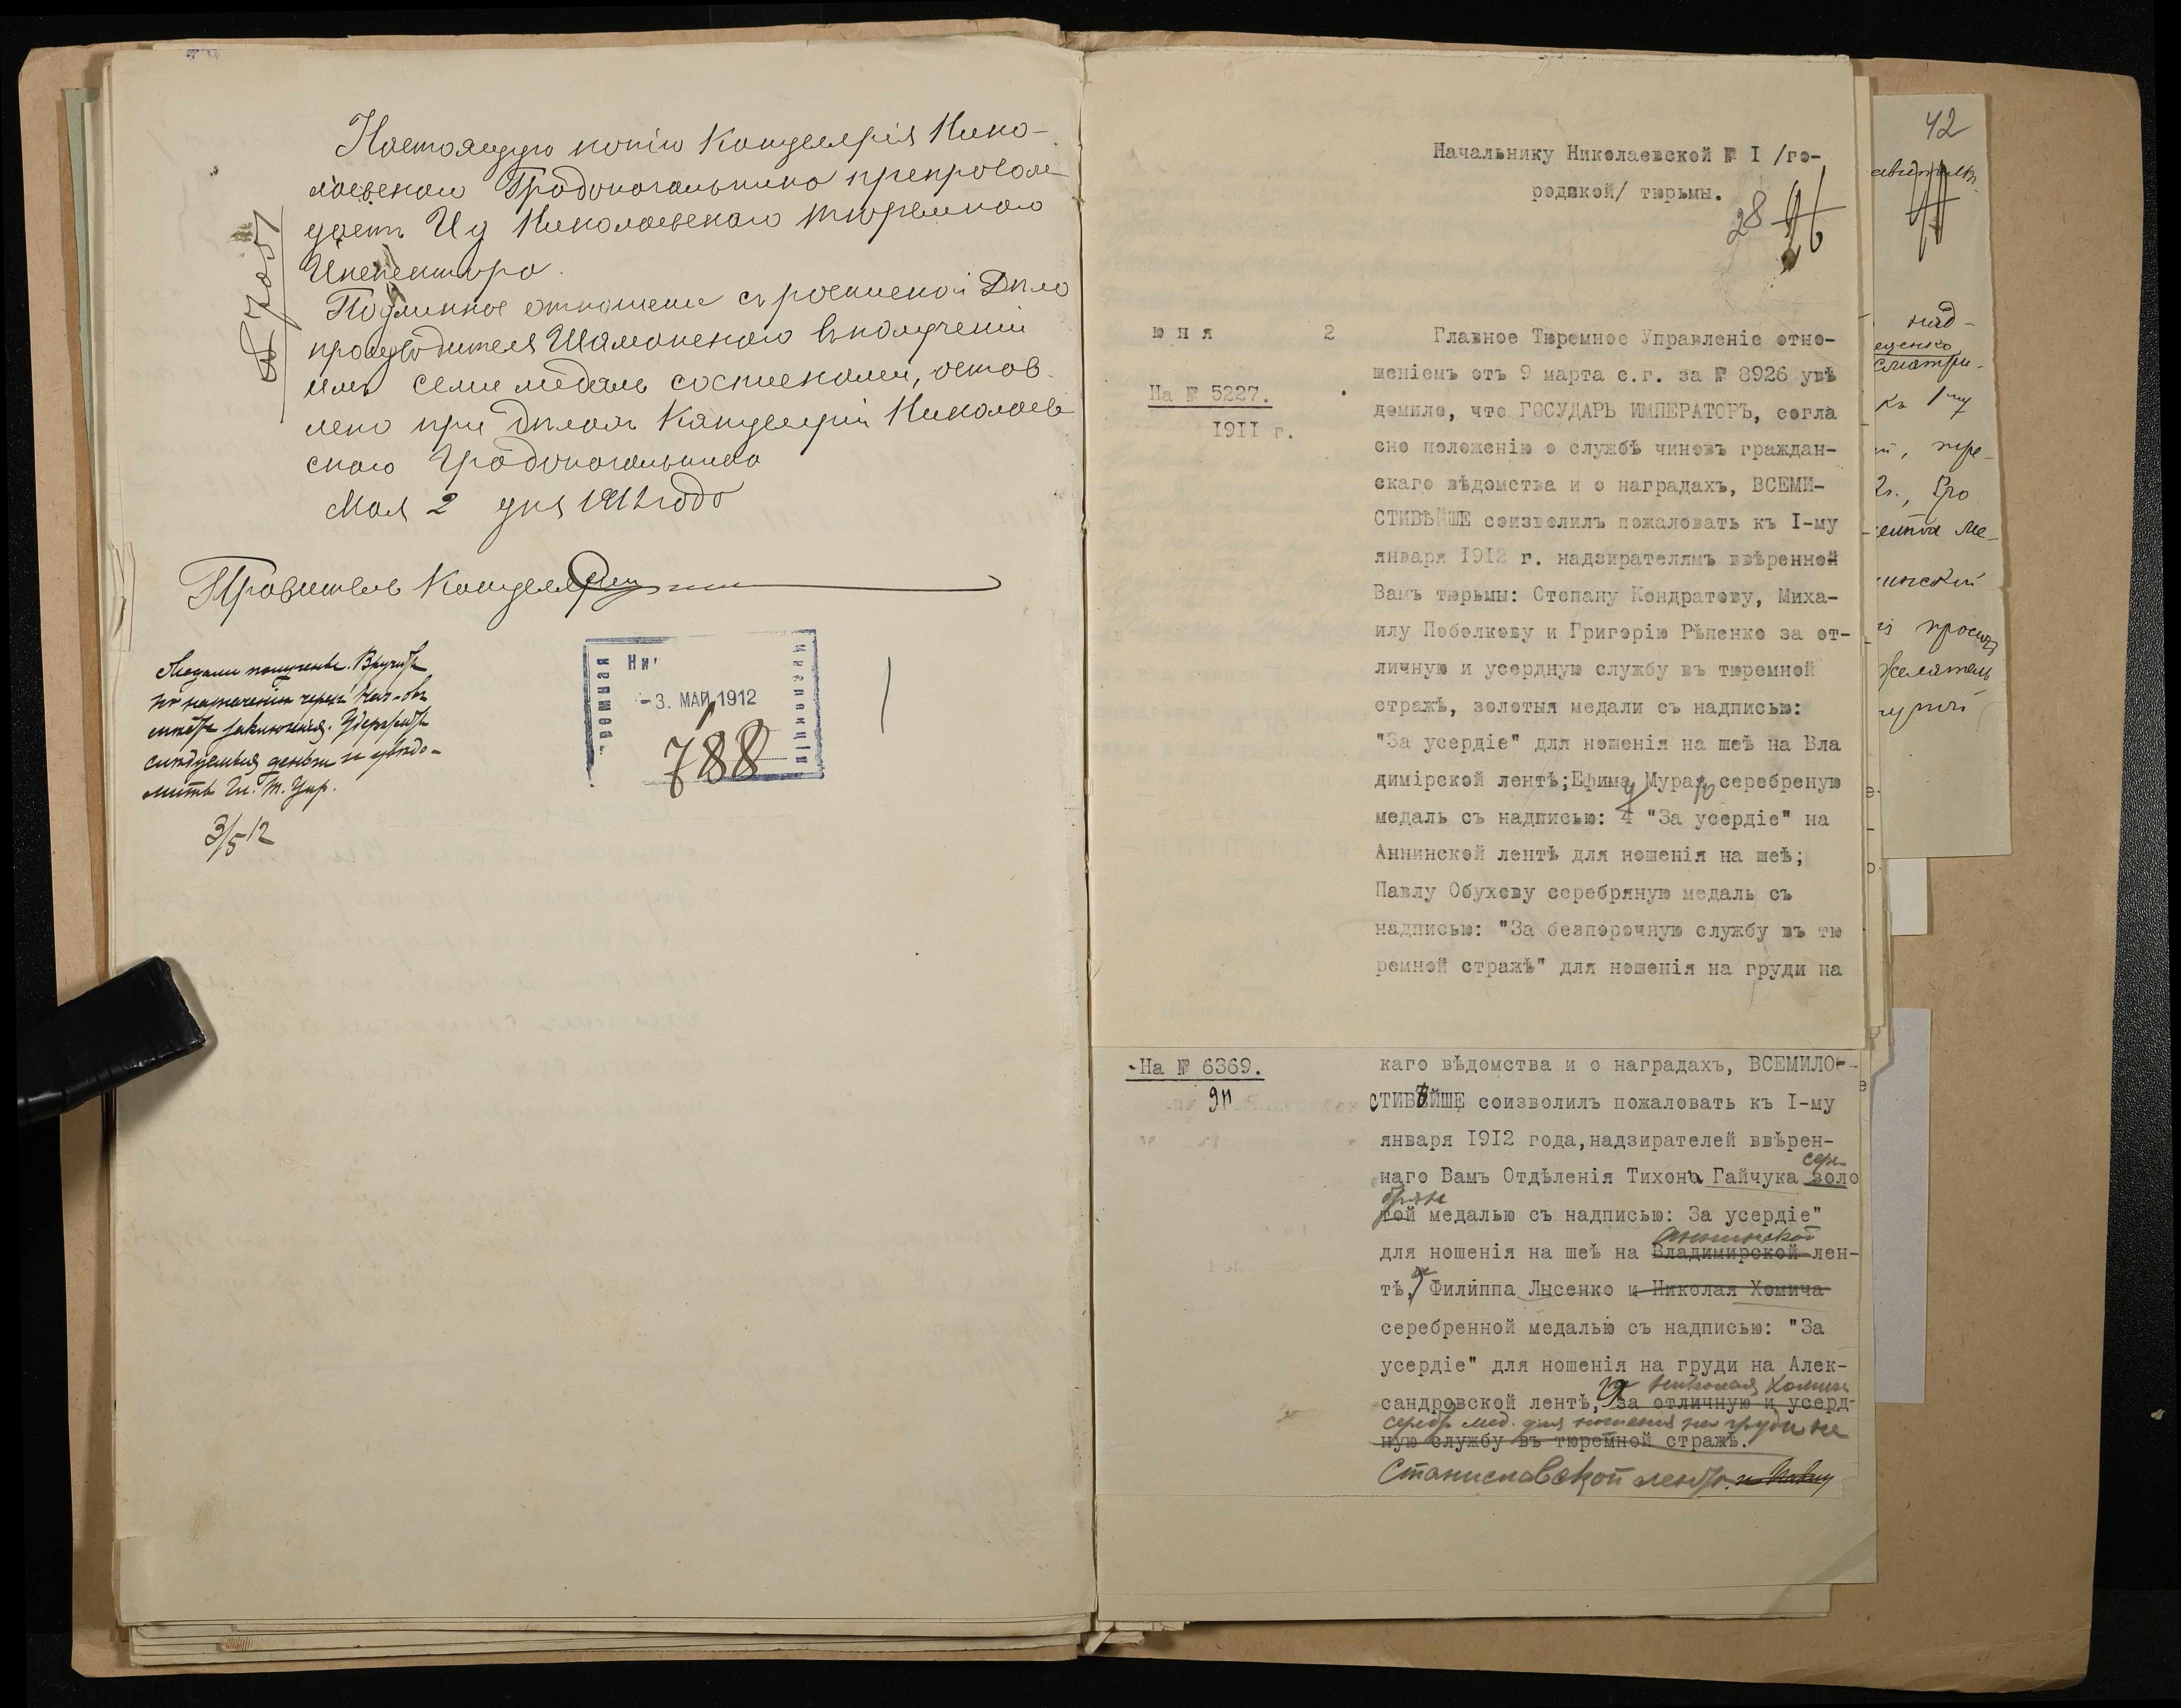 Настоящую копію Канцелярія Нико-
лаевскаго Градоначальника препровож
даетъ Г Николаевскаго Тюремнаго
Инспектора.
Подлинное отношеніе съ роспиской Дѣло
производителя Шаманскаго въ полученіи
имъ семи медалей оставле
но при дѣлахъ Канцеляріи Николаев
скаго Градоначальника
Мая 2 дня 1912 года
Правитель Канцеляріи
Медали получены. Вручить
по назначенію черезъ Нач-въ
мѣстъ заключенія.
слѣдуемыя деньги и увѣдо-
мить Гл. Т. Упр.
3/5 12
-3. МАЙ 1912
788
42
Начальнику Николаевской № I /го-
родской/ тюрьмы.
28
46
юня 2
На № 5227.
1911 г.
Главное Тюремное Управленіе отно-
шеніемъ отъ 9 марта с.г. за № 8926 увѣ
домило, что ГОСУДАРЬ ИМПЕРАТОРЪ, согла
сно положенію о службѣ чиновъ граждан-
скаго вѣдомства и о наградахъ, ВСЕМИ-
СТИВѢЙШЕ соизволилъ пожаловать къ I-му
января 1912 г. надзирателямъ ввѣренной
Вамъ тюрьмы: Степану Кондратову, Миха-
илу Поболкову и Григорію Рѣпенко за от-
личную и усердную службу въ тюремной
стражѣ, золотыя медали съ надписью:
"За усердіе" для ношенія на шеѣ на Вла
димірской лентѣ; Ефиму Мураю серебреную
медаль съ надписью: "За усердіе" на
Аннинской лентѣ для ношенія на шеѣ;
Павлу Обухову серебряную медаль съ
надписью: "За безпорочную службу въ тю
ремной стражѣ" для ношенія на груди на
На № 6369.
911
каго вѣдомства и о наградахъ, ВСЕМИЛО-
СТИВѢЙШЕ соизволилъ пожаловать къ I-му
января 1912 года, надзирателей ввѣрен-
сере-
наго Вамъ Отдѣленія Тихона Гайчука золо
брян
той медалью съ надписью: За усердіе"
Аннинской
для ношенія на шеѣ на Владимирской лен-
тѣ, Филиппа Лысенко и Николая Хомича
серебренной медалью съ надписью: "За
усердіе" для ношенія на груди на Алек-
и Николая Хомича
сандровской лентѣ, за отличную и усерд-
серебр мед. для ношенія на груди на
ную службу въ тюремной стражѣ.
Станиславской лентѣ.